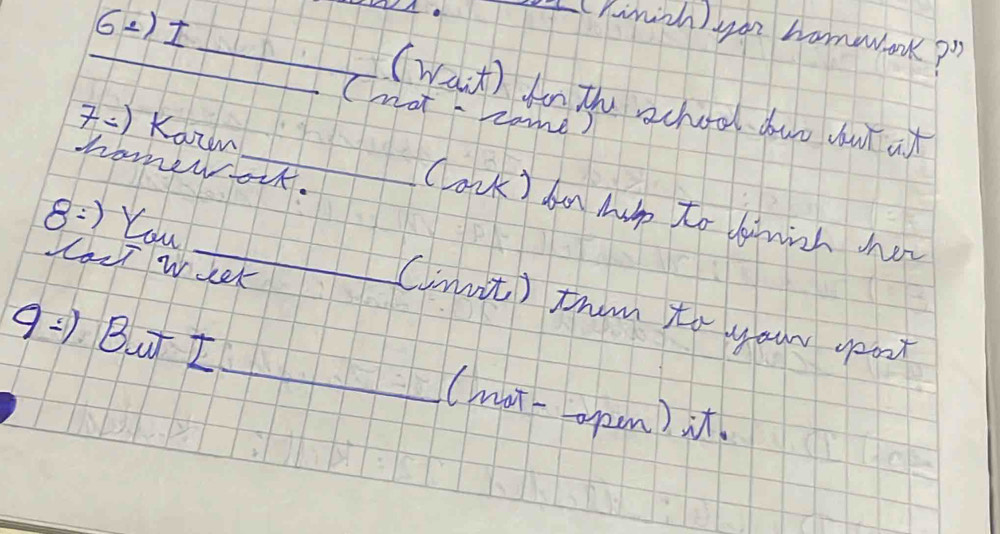 (Finish) yor homework?"
6=) I ________ (Wait) for the school bus but it
________ (not - come)
7=) Karen ________ (ask) for help to finish her
homework.
8=) You ________ (invit) them to your post
last week
9=) But I ________ (not- open) it.